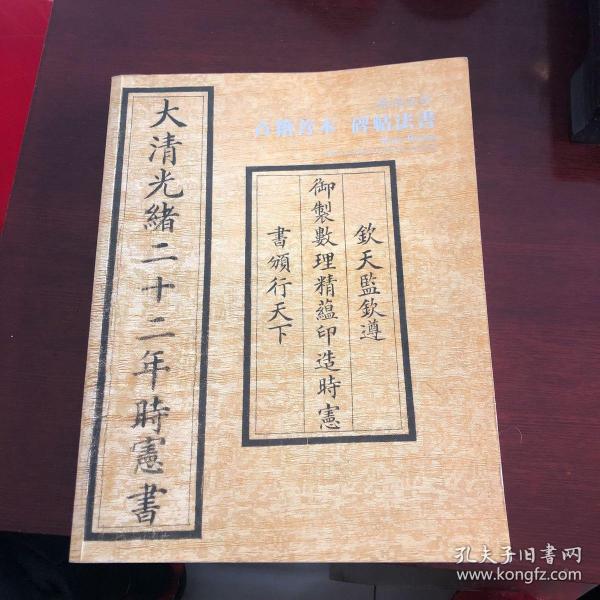 大清光緒二十二年時憲書
古籍善本 碑帖法書
欽天監欽遵
御製數理精蘊印造時憲
書頒行天下
孔夫子旧书网
www.kongfz.com